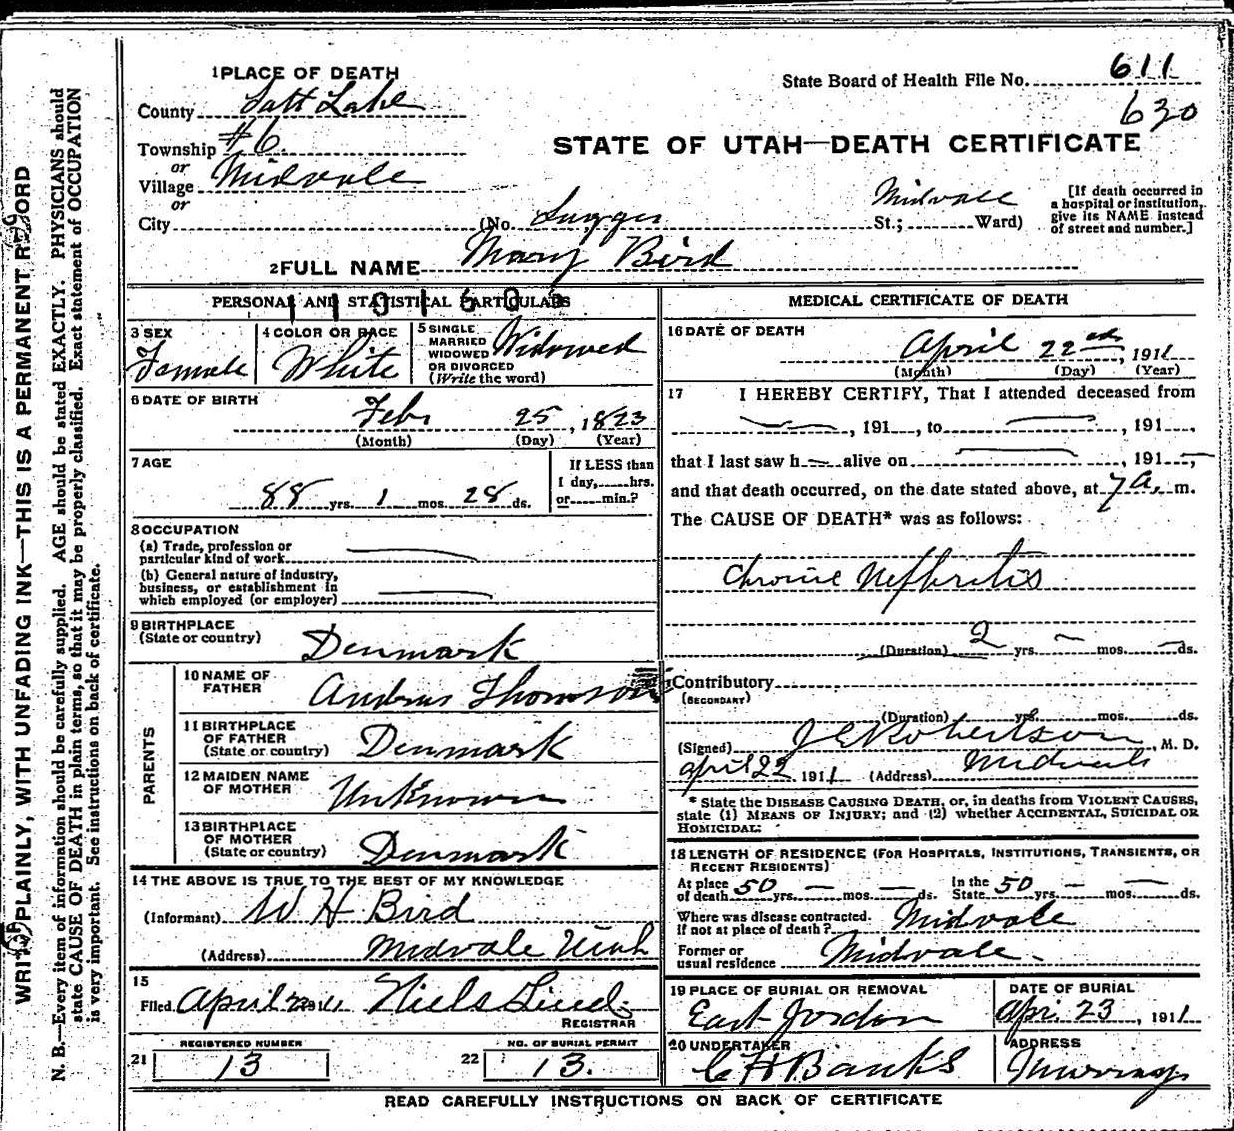 1 PLACE OF DEATH
State Board of Health File No. 611
County Salt Lake
630
Township #6.
STATE OF UTAH—DEATH CERTIFICATE
or
Village Midvale
or
City (No. St.; Midvale Ward)
[If death occurred in
a hospital or institution,
give its NAME instead
of street and number.]
2 FULL NAME Mary Bird
PERSONAL AND STATISTICAL PARTICULARS
3 SEX Female
4 COLOR OR RACE White
5 SINGLE
MARRIED
WIDOWED
OR DIVORCED
(Write the word) Widowed
6 DATE OF BIRTH
Feb. 25, 1823
(Month) (Day) (Year)
7 AGE
88 yrs. 1 mos. 28 ds.
If LESS than
1 day, hrs.
or min.?
8 OCCUPATION
(a) Trade, profession or
particular kind of work
(b) General nature of industry,
business, or establishment in
which employed (or employer)
9 BIRTHPLACE
(State or country) Denmark
PARENTS
10 NAME OF
FATHER Andrus Thomson
11 BIRTHPLACE
OF FATHER
(State or country) Denmark
12 MAIDEN NAME
OF MOTHER Unknown
13 BIRTHPLACE
OF MOTHER
(State or country) Denmark
14 THE ABOVE IS TRUE TO THE BEST OF MY KNOWLEDGE
(Informant) W H Bird
(Address) Midvale Utah
15
Filed April 1911 Niels Lind
REGISTRAR
REGISTERED NUMBER
21 13
NO. OF BURIAL PERMIT
22 13.
MEDICAL CERTIFICATE OF DEATH
16 DATE OF DEATH
April 22nd, 1911
(Month) (Day) (Year)
17 I HEREBY CERTIFY, That I attended deceased from
, 191 , to , 191 ,
that I last saw h alive on , 191 ,
and that death occurred, on the date stated above, at 7 A. m.
The CAUSE OF DEATH* was as follows:
Chronic Nephritis
(Duration) 2 yrs. mos. ds.
Contributory
(SECONDARY)
(Duration) yrs. mos. ds.
(Signed) J E Robertson, M. D.
April 22 1911 (Address) Midvale
* State the DISEASE CAUSING DEATH, or, in deaths from VIOLENT CAUSES,
state (1) MEANS OF INJURY; and (2) whether ACCIDENTAL, SUICIDAL OR
HOMICIDAL:
18 LENGTH OF RESIDENCE (FOR HOSPITALS, INSTITUTIONS, TRANSIENTS, OR
RECENT RESIDENTS)
At place
of death 50 yrs. mos. ds. In the
State 50 yrs. mos. ds.
Where was disease contracted.
if not at place of death? Midvale
Former or
usual residence Midvale.
19 PLACE OF BURIAL OR REMOVAL
East Jordan
DATE OF BURIAL
Apr. 23, 1911
20 UNDERTAKER
C H Banks
ADDRESS
Murray
READ CAREFULLY INSTRUCTIONS ON BACK OF CERTIFICATE
WRITE PLAINLY, WITH UNFADING INK—THIS IS A PERMANENT RECORD
N. B.—Every item of information should be carefully supplied. AGE should be stated EXACTLY. PHYSICIANS should
state CAUSE OF DEATH in plain terms, so that it may be properly classified. Exact statement of OCCUPATION
is very important. See instructions on back of certificate.